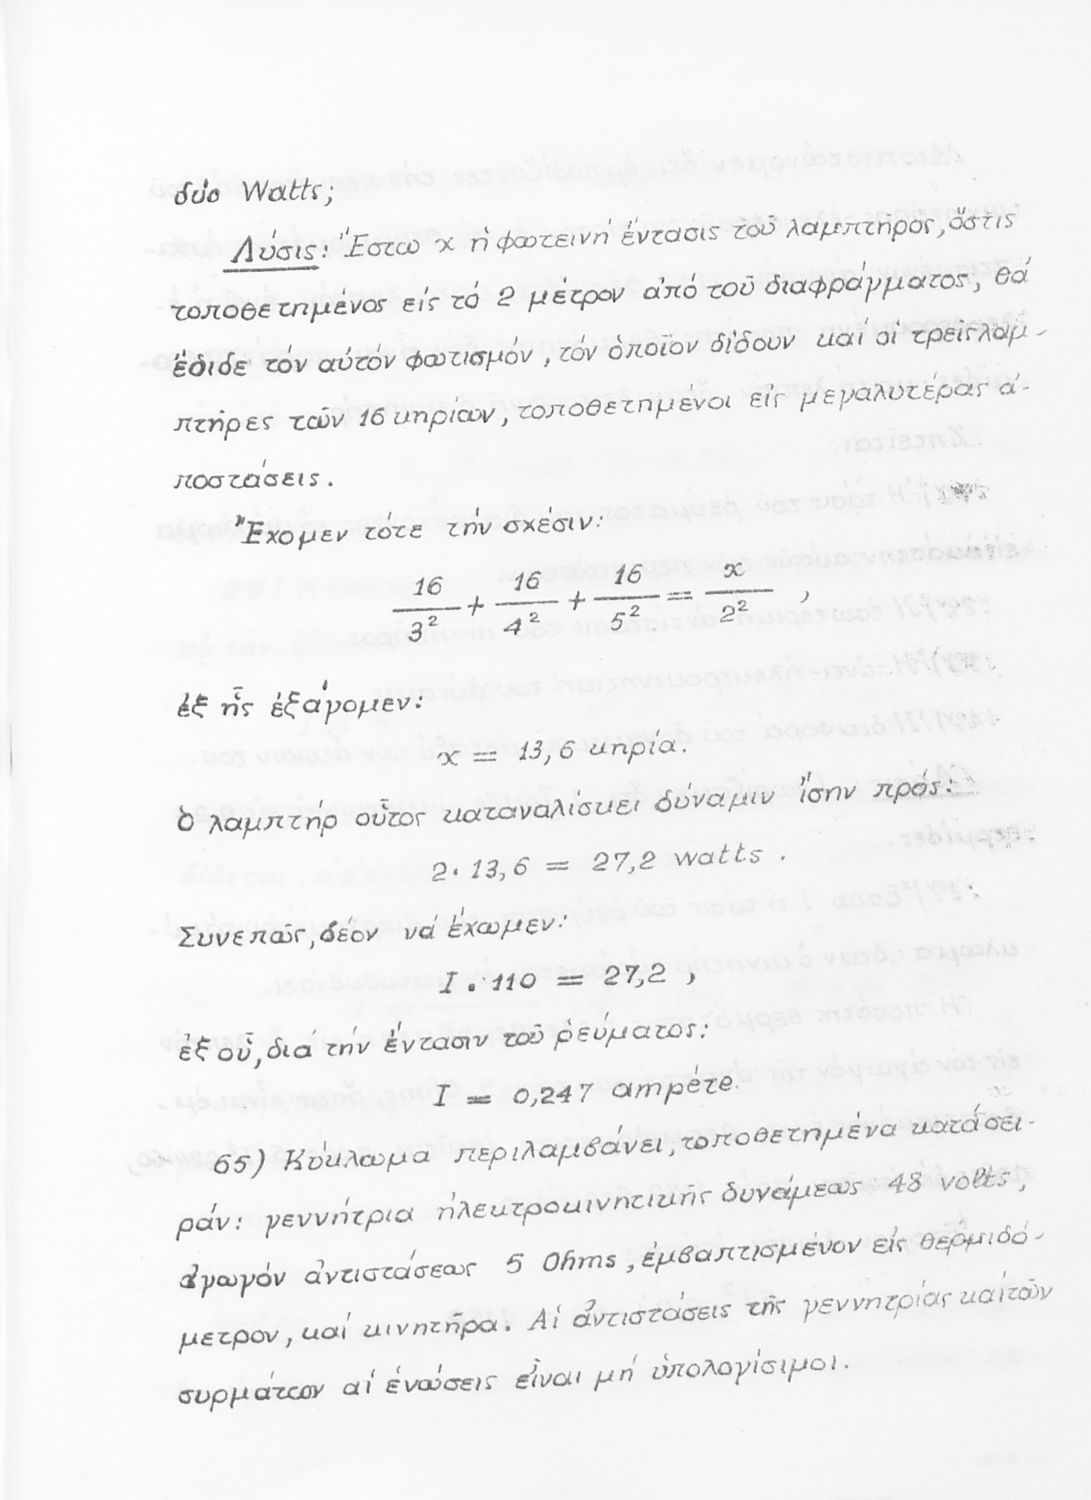 δύο Watts;
Λύσις: Ἔστω x ἡ φωτεινή ἔντασις τοῦ λαμπτῆρος, ὅστις
τοποθετημένος εἰς τό 2 μέτρον ἀπό τοῦ διαφράγματος, θά
ἔδιδε τόν αὐτόν φωτισμόν, τόν ὁποῖον δίδουν καί οἱ τρεῖς λαμ-
πτῆρες τῶν 16 κηρίων, τοποθετημένοι εἰς μεγαλυτέρας ἀ-
ποστάσεις.
Ἔχομεν τότε τήν σχέσιν:
16/3² + 16/4² + 16/5² = x/2² ,
ἐξ ἧς ἐξάγομεν:
x = 13,6 κηρία.
Ὁ λαμπτήρ οὗτος καταναλίσκει δύναμιν ἴσην πρός:
2·13,6 = 27,2 watts .
Συνεπῶς, δέον νά ἔχωμεν:
I . 110 = 27,2 ,
ἐξ οὗ, διά τήν ἔντασιν τοῦ ῥεύματος:
I = 0,247 ampére.
65) Κύκλωμα περιλαμβάνει, τοποθετημένα κατά σει-
ράν: γεννήτρια ἠλεκτροκινητικῆς δυνάμεως 48 volts,
ἀγωγόν ἀντιστάσεως 5 Ohms, ἐμβαπτισμένον εἰς θερμιδό-
μετρον, καί κινητῆρα. Αἱ ἀντιστάσεις τῆς γεννητρίας καί τῶν
συρμάτων αἱ ἑνώσεις εἶναι μή ὑπολογίσιμοι.